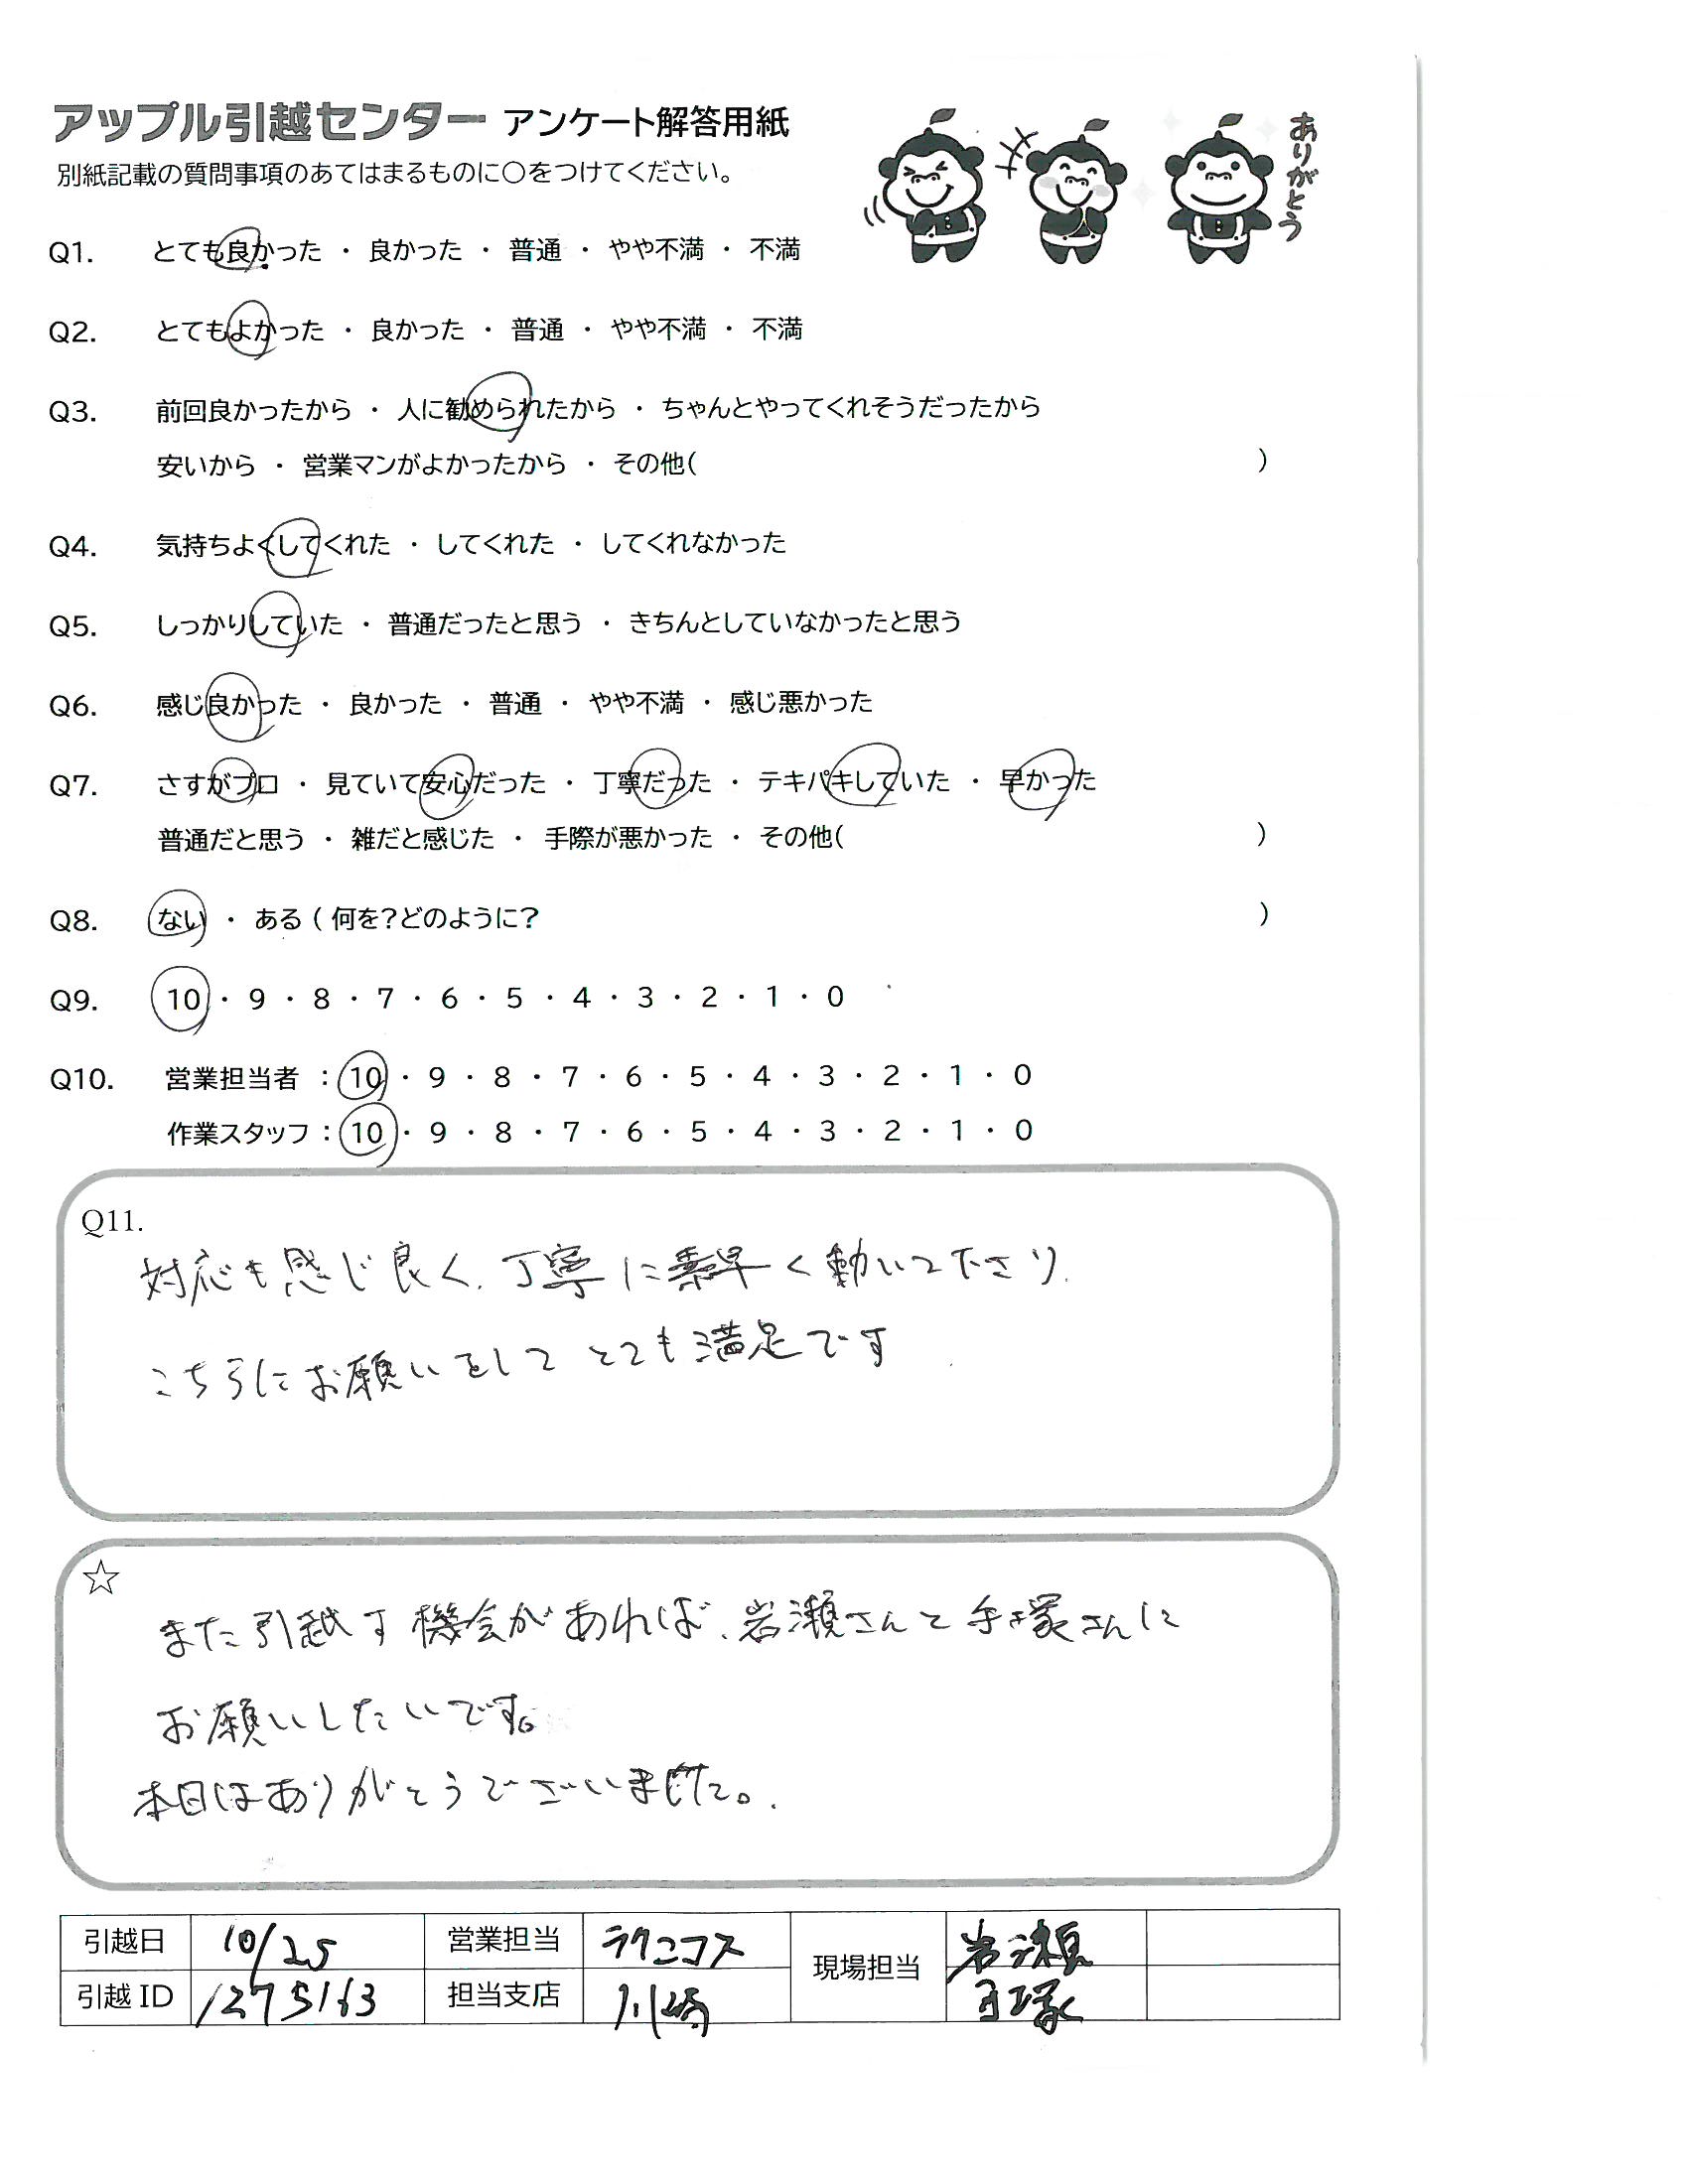 アップル引越センター アンケート解答用紙
ありがとう
別紙記載の質問事項のあてはまるものに○をつけてください。
Q1. とても良かった ・ 良かった ・ 普通 ・ やや不満 ・ 不満
Q2. とてもよかった ・ 良かった ・ 普通 ・ やや不満 ・ 不満
Q3. 前回良かったから ・ 人に勧められたから ・ ちゃんとやってくれそうだったから
安いから ・ 営業マンがよかったから ・ その他( )
Q4. 気持ちよくしてくれた ・ してくれた ・ してくれなかった
Q5. しっかりしていた ・ 普通だったと思う ・ きちんとしていなかったと思う
Q6. 感じ良かった ・ 良かった ・ 普通 ・ やや不満 ・ 感じ悪かった
Q7. さすがプロ ・ 見ていて安心だった ・ 丁寧だった ・ テキパキしていた ・ 早かった
普通だと思う ・ 雑だと感じた ・ 手際が悪かった ・ その他( )
Q8. ない ・ ある ( 何を?どのように? )
Q9. 10 ・ 9 ・ 8 ・ 7 ・ 6 ・ 5 ・ 4 ・ 3 ・ 2 ・ 1 ・ 0
Q10. 営業担当者 : 10 ・ 9 ・ 8 ・ 7 ・ 6 ・ 5 ・ 4 ・ 3 ・ 2 ・ 1 ・ 0
作業スタッフ : 10 ・ 9 ・ 8 ・ 7 ・ 6 ・ 5 ・ 4 ・ 3 ・ 2 ・ 1 ・ 0
Q11.
対応も感じ良く、丁寧に素早く動いて下さり、
こちらにお願いをして とても満足です
☆
また引越す機会があれば、岩瀬さんと手塚さんに
お願いしたいです。
本日はありがとうございました。
引越日 10/25 営業担当 ラクニコス 現場担当 岩瀬
引越ID 1275163 担当支店 川崎 手塚